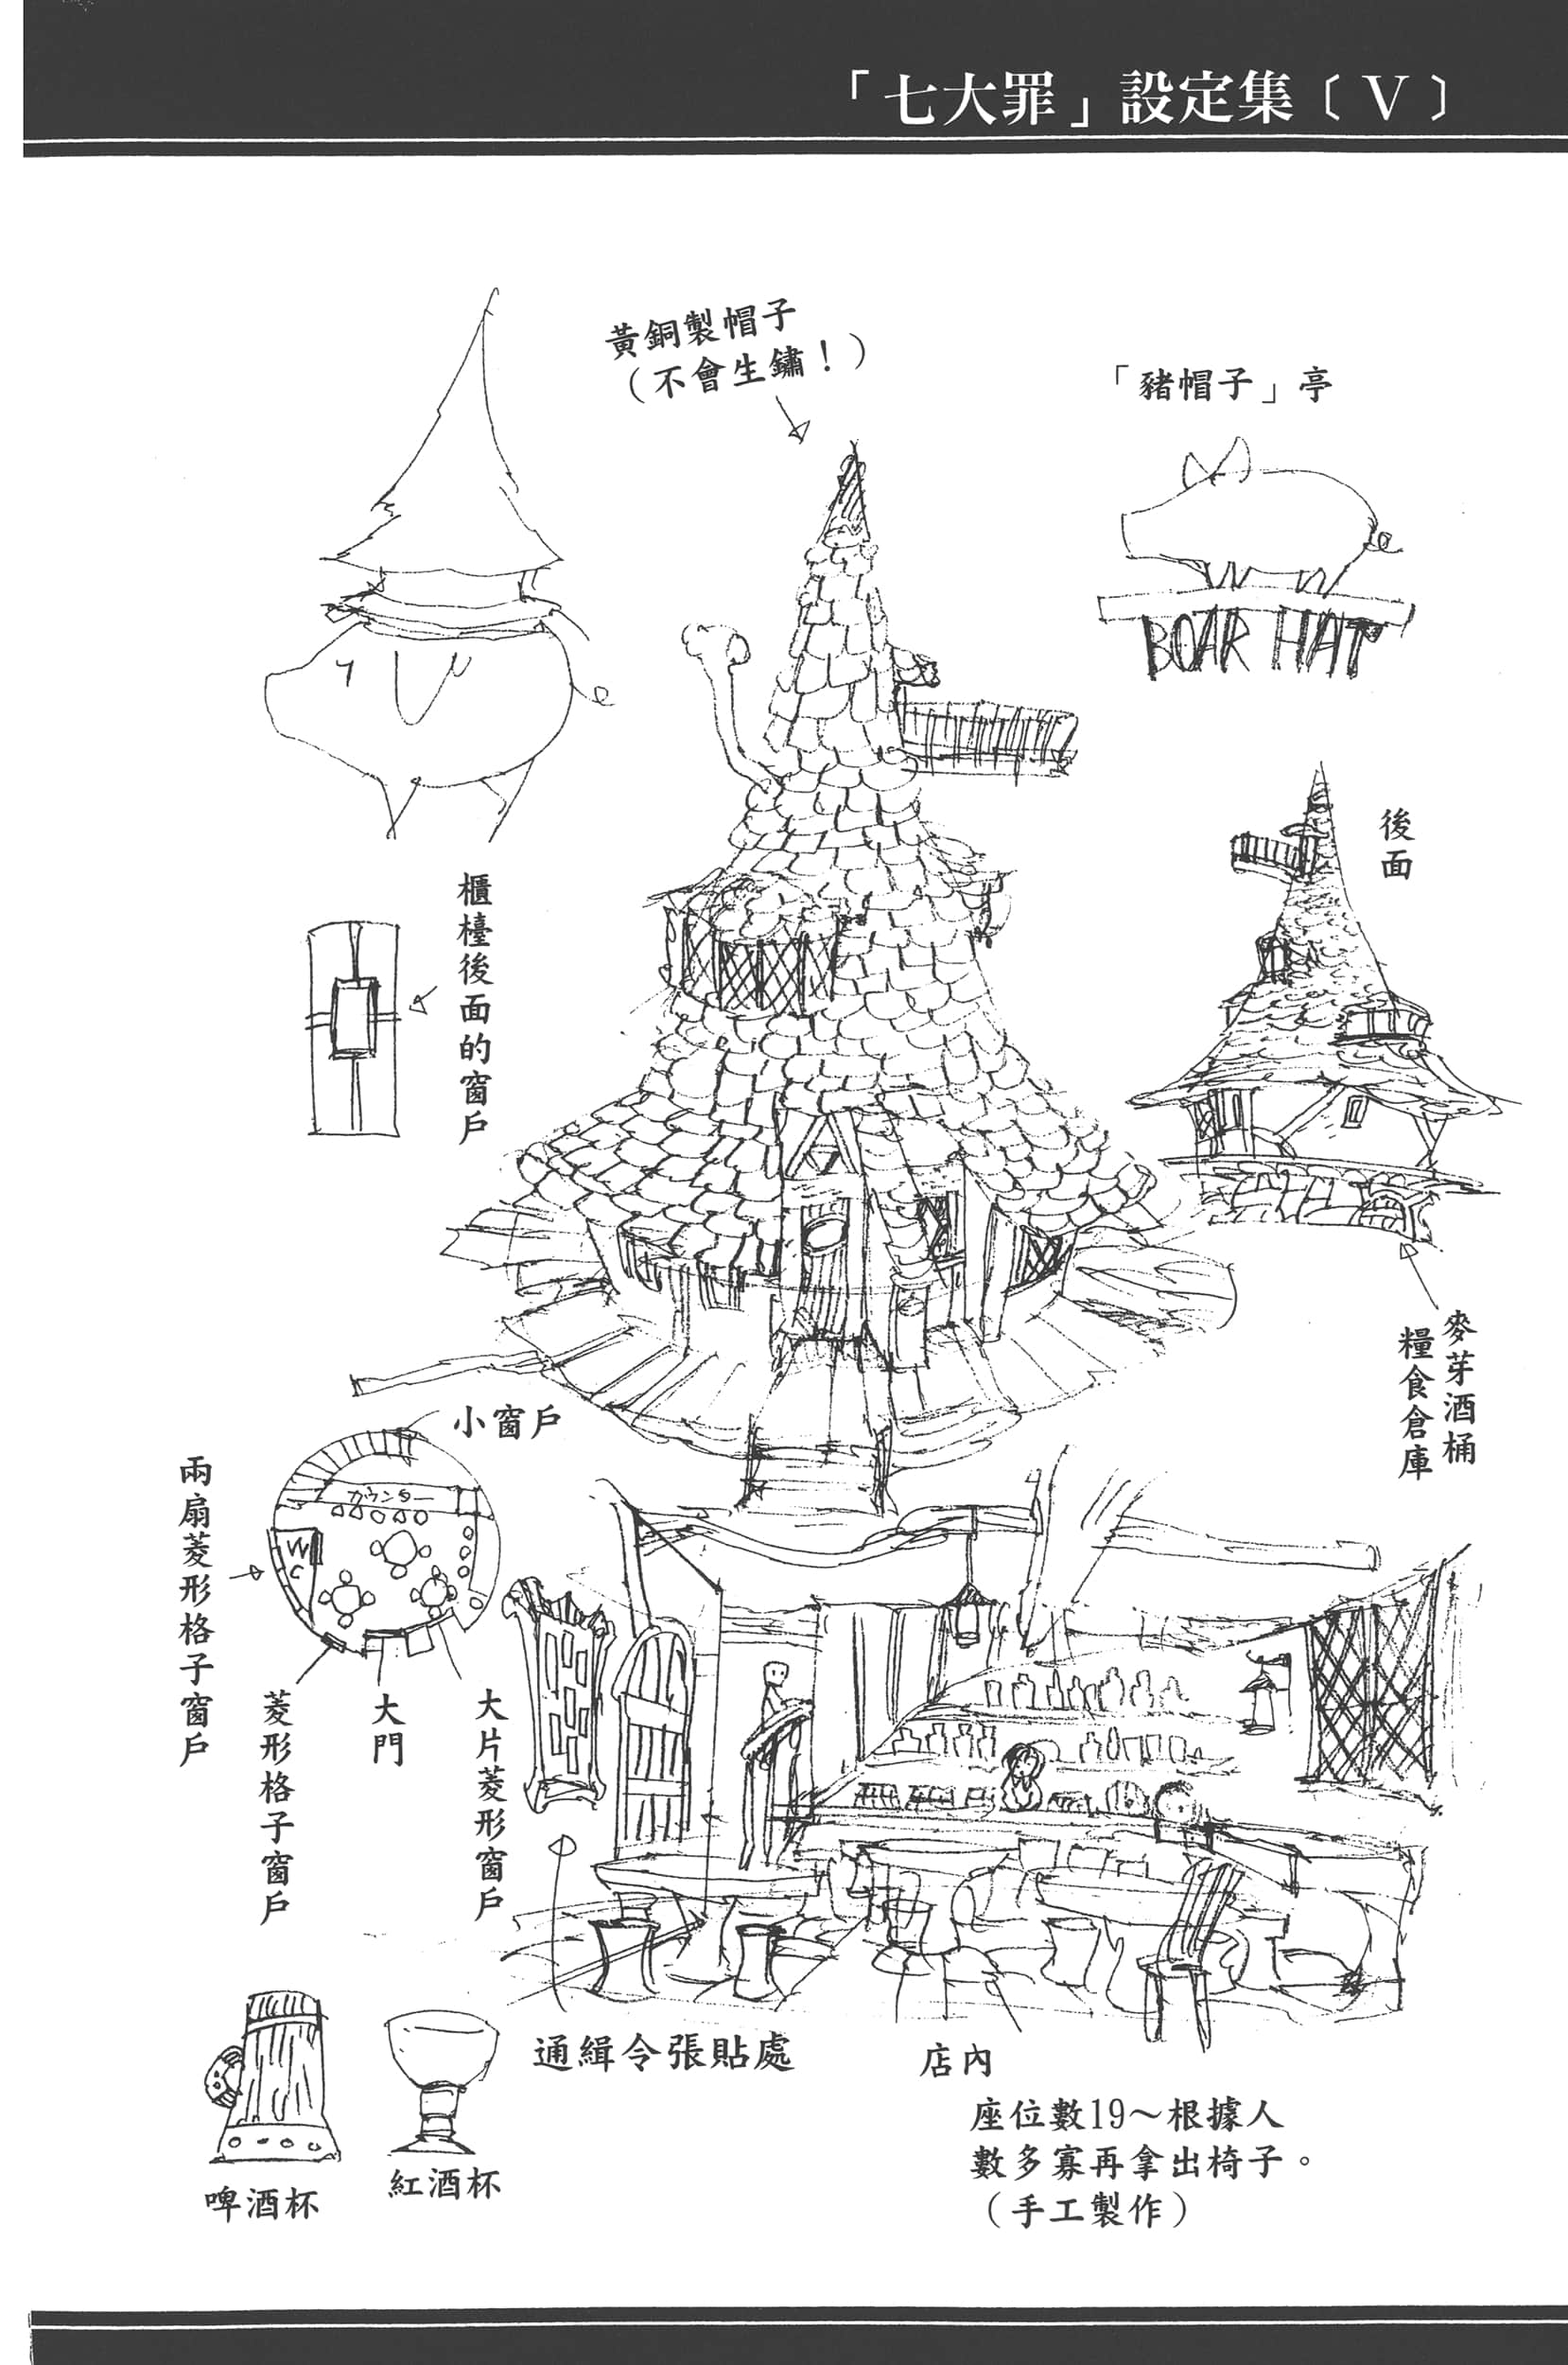 「七大罪」設定集〔Ⅴ〕
黃銅製帽子
（不會生鏽！）
「豬帽子」亭
BOAR HAT
後面
櫃檯後面的窗戶
麥芽酒桶
糧食倉庫
小窗戶
カウンター
WC
兩扇菱形格子窗戶
菱形格子窗戶
大門
大片菱形窗戶
通緝令張貼處
店內
座位數19～根據人
數多寡再拿出椅子。
（手工製作）
啤酒杯
紅酒杯